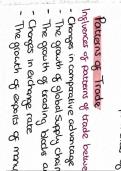 Patterns of Trade
Influences of patterns of trade betwe
- Changes in comparative advantage
- The growth of global supply chain
- The growth of trading blocks an
- Changes in exchange rate
- The growth of exports of manu